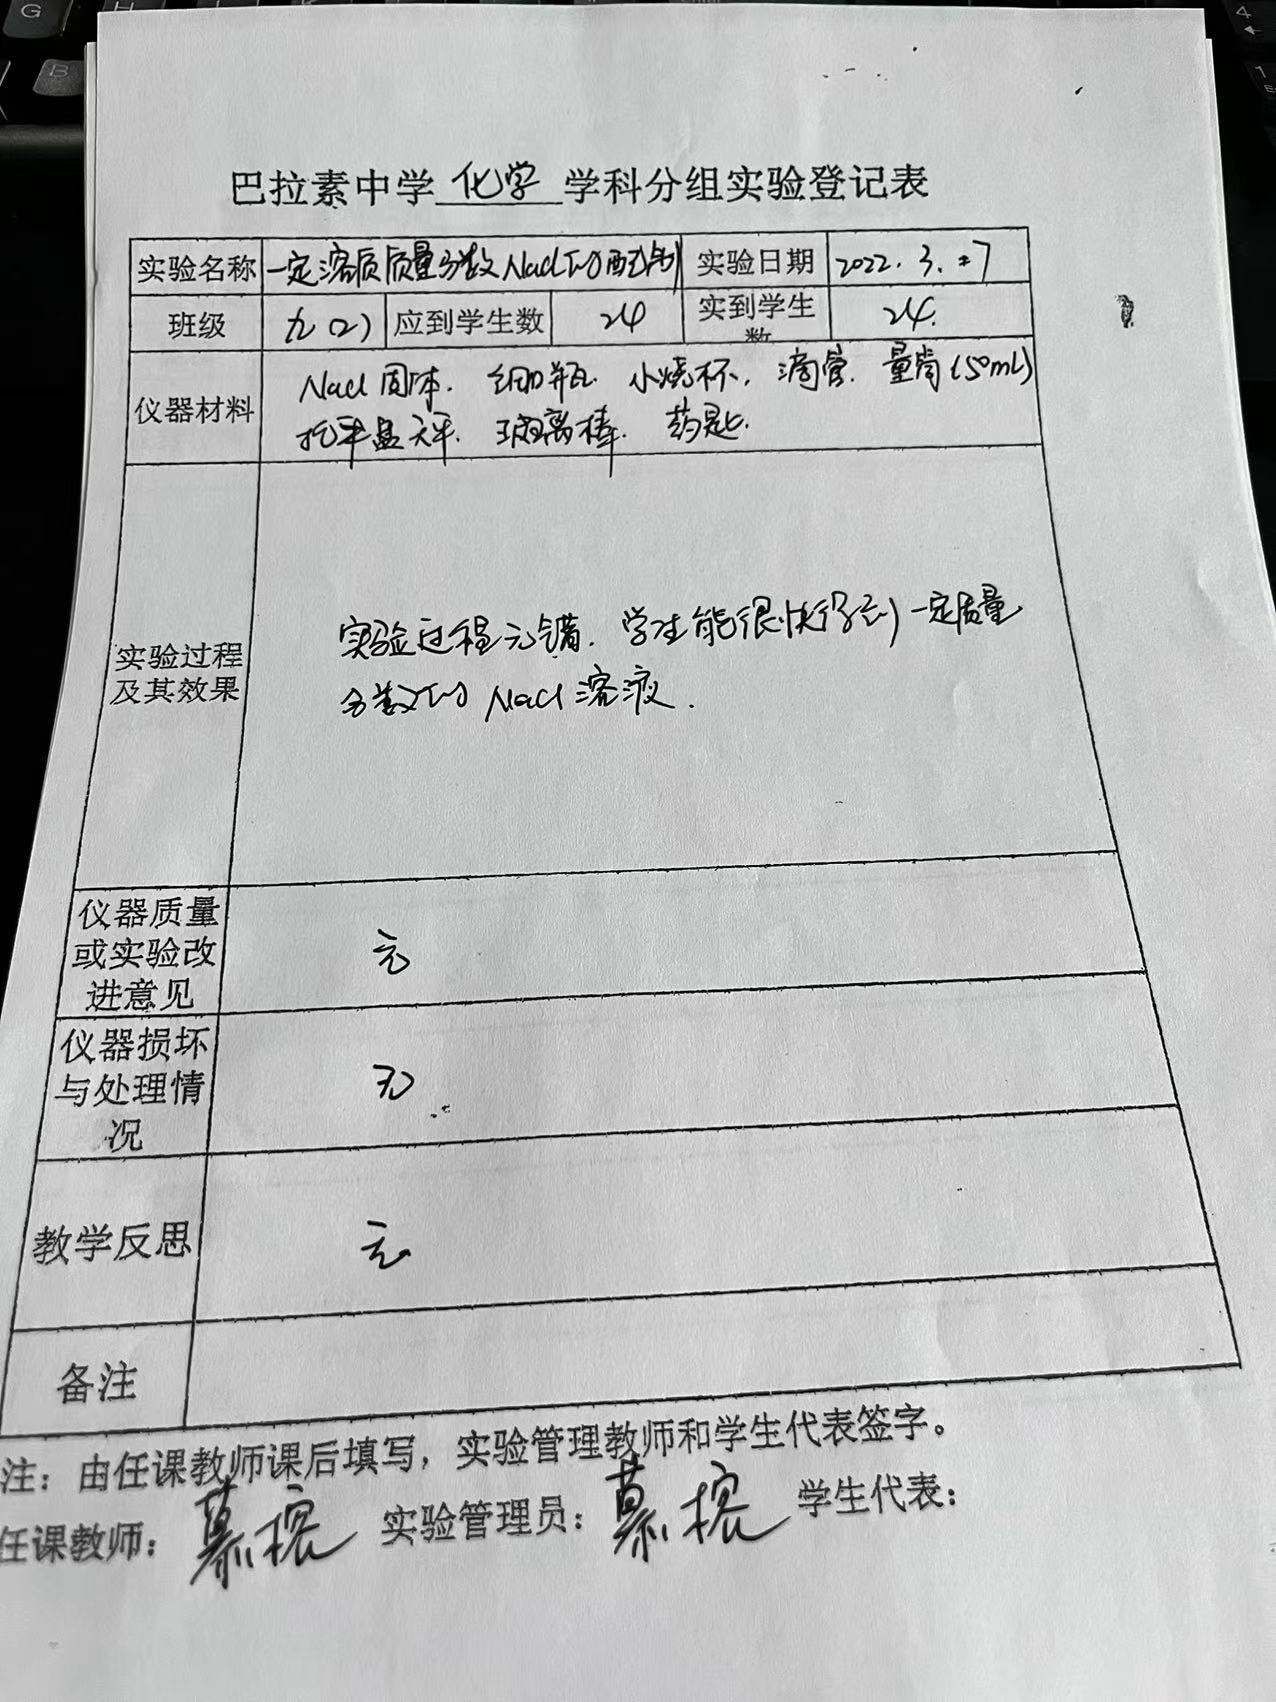 巴拉素中学 化学 学科分组实验登记表
实验名称 一定溶质质量分数NaCl的配制 实验日期 2022.3.27
班级 九(2) 应到学生数 24 实到学生数 24.
仪器材料 NaCl固体. 细口瓶. 小烧杯, 滴管. 量筒(50mL)
托平盘天平. 玻离棒. 药匙.
实验过程及其效果
实验过程无错. 学生能很快得到一定质量
分数的 NaCl 溶液.
仪器质量
或实验改
进意见
无
仪器损坏
与处理情
况
无
教学反思 无
备注
注：由任课教师课后填写，实验管理教师和学生代表签字。
任课教师： 实验管理员： 学生代表：